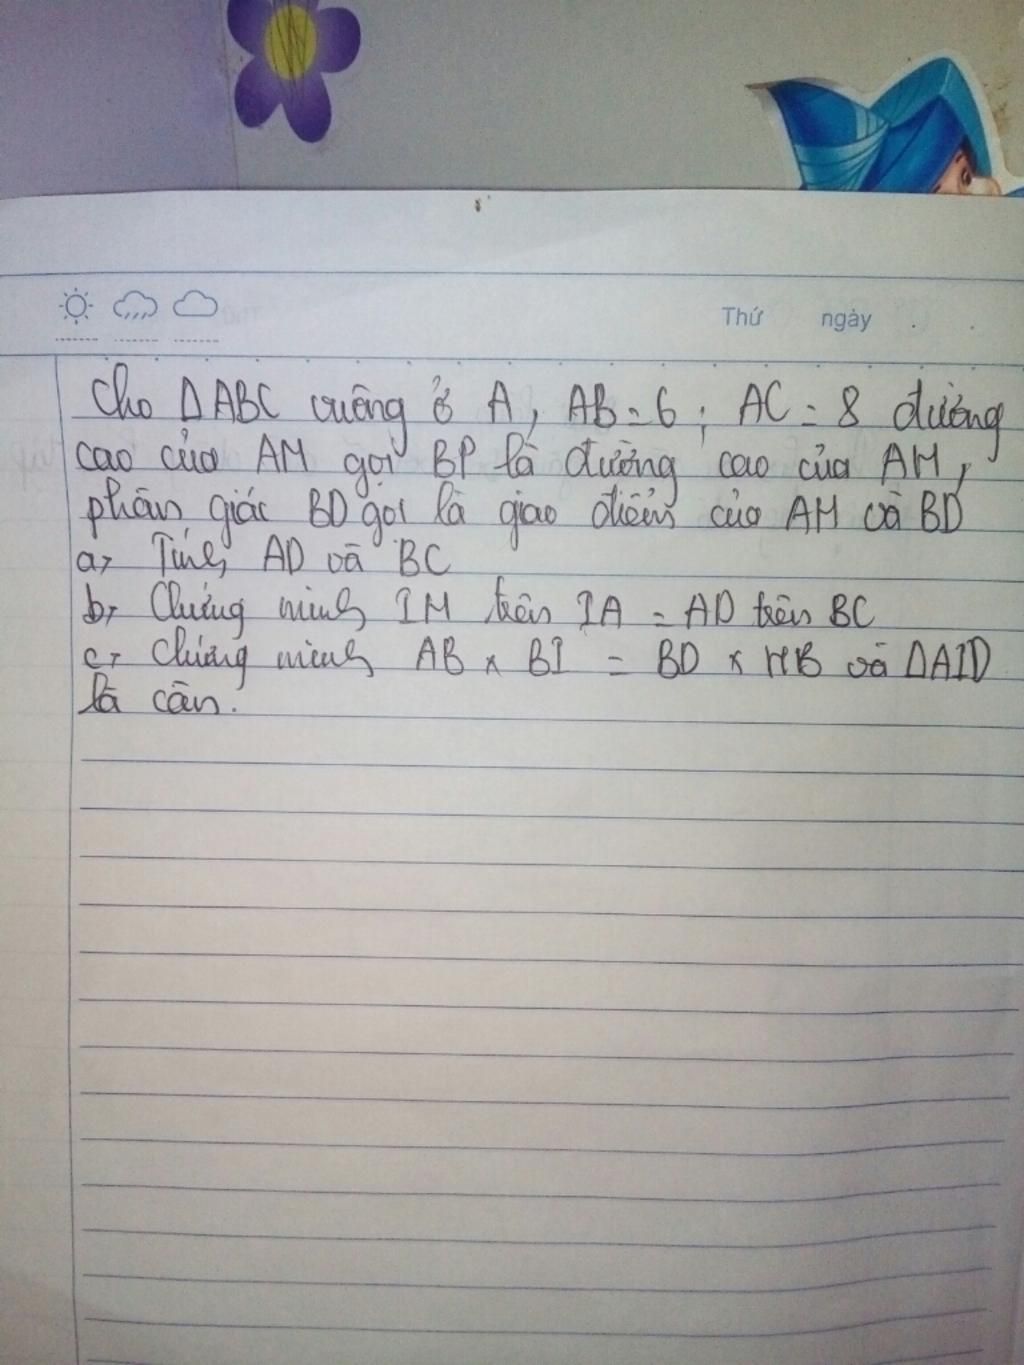 Thứ ngày
Cho ΔABC vuông ở A, AB = 6; AC = 8 đường
cao của AM gọi BP là đường cao của AM,
phân giác BD gọi là giao điểm của AM và BD
a, Tính AD và BC
b, Chứng minh IM trên IA = AD trên BC
c, Chứng minh AB x BI = BD x HB và ΔAID
là cân.